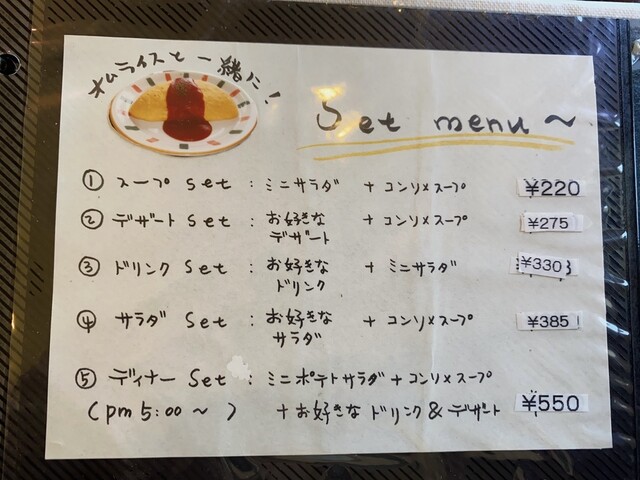 オムライスと一緒に!
Set menu~
① スープ Set : ミニサラダ + コンソメスープ ¥220
② デザート Set : お好きな + コンソメスープ ¥275
デザート
③ ドリンク Set : お好きな + ミニサラダ ¥330
ドリンク
④ サラダ Set : お好きな + コンソメスープ ¥385
サラダ
⑤ ディナー Set : ミニポテトサラダ + コンソメスープ
(pm 5:00 ~ ) + お好きな ドリンク & デザート ¥550